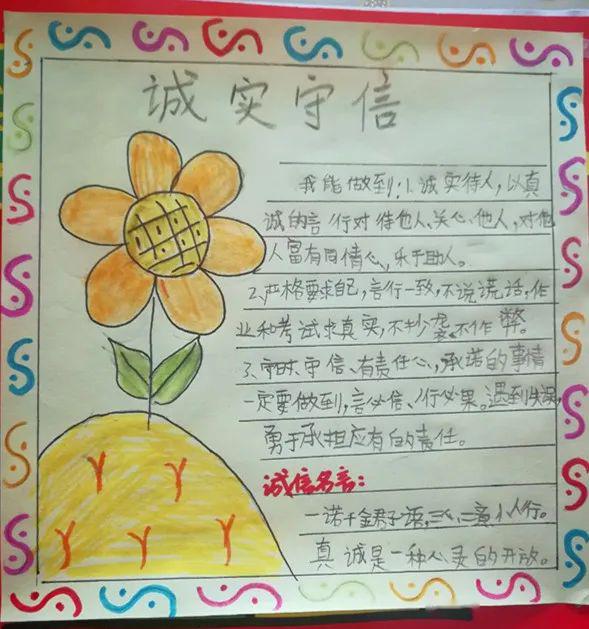 诚实守信
我能做到:1.诚实待人,以真
诚的言行对待他人、关心他人,对他
人富有同情心,乐于助人。
2.严格要求自己,言行一致,不说谎话,作
业和考试求真实,不抄袭不作弊。
3.守时、守信、有责任心,承诺的事情
一定要做到,言必信、行必果。遇到失误,
勇于承担应有的责任。
诚信名言:
一诺千金君子语,三心二意小人行。
真诚是一种心灵的开放。